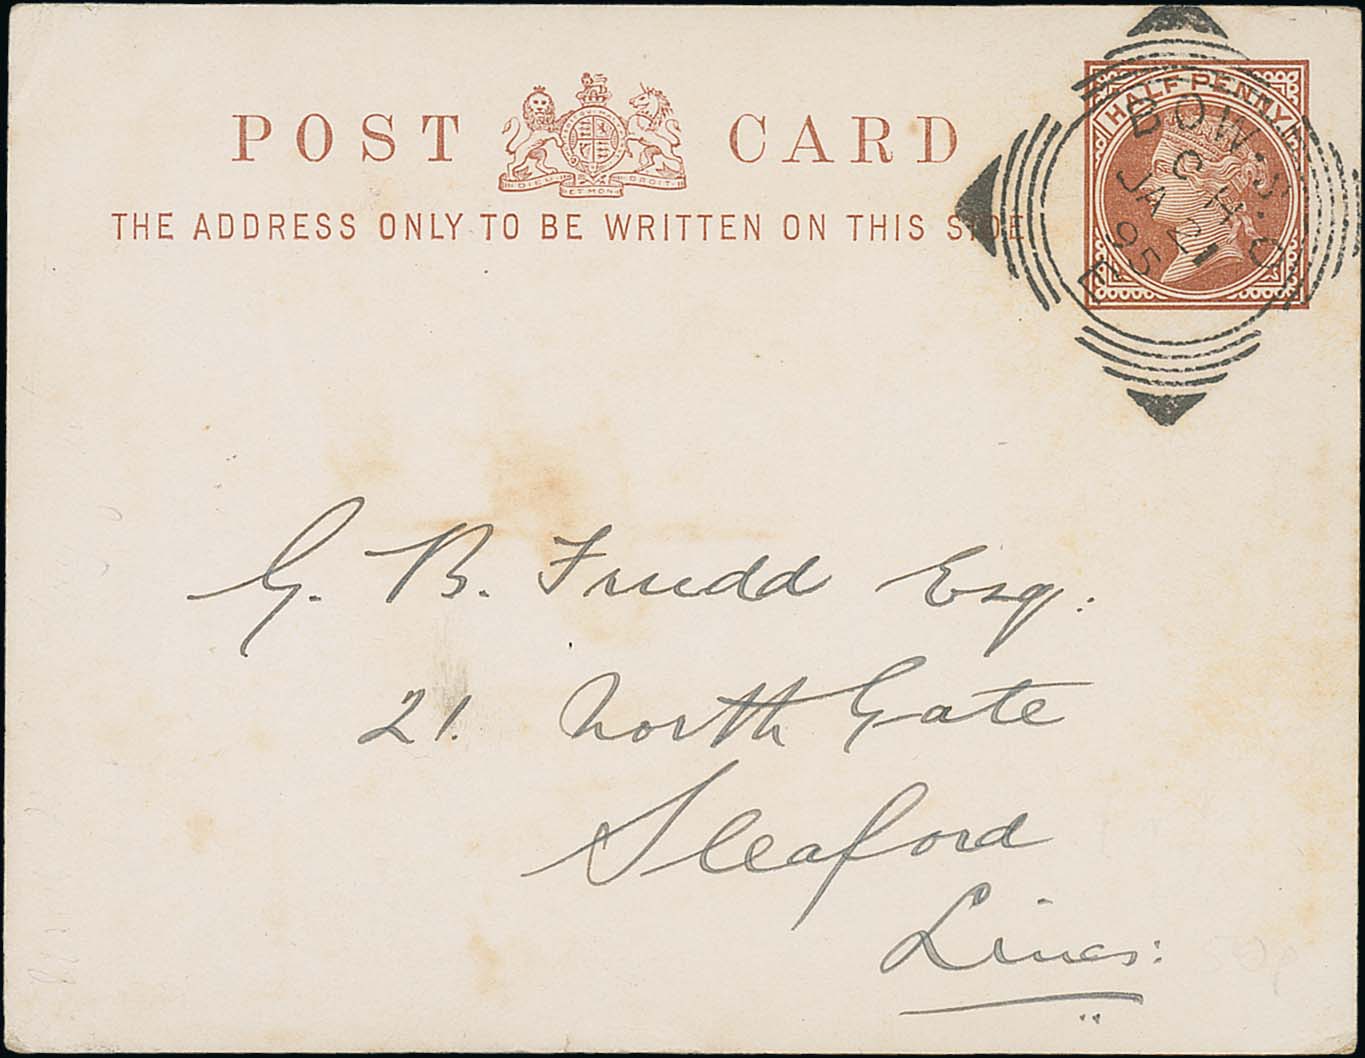 POST CARD
DIEU ET MON DROIT
THE ADDRESS ONLY TO BE WRITTEN ON THIS SIDE
HALF PENNY
BOW. S. O.
C
JA 21
95
E
G. B. Frudd Esq.
21. North Gate
Sleaford
Lincs: